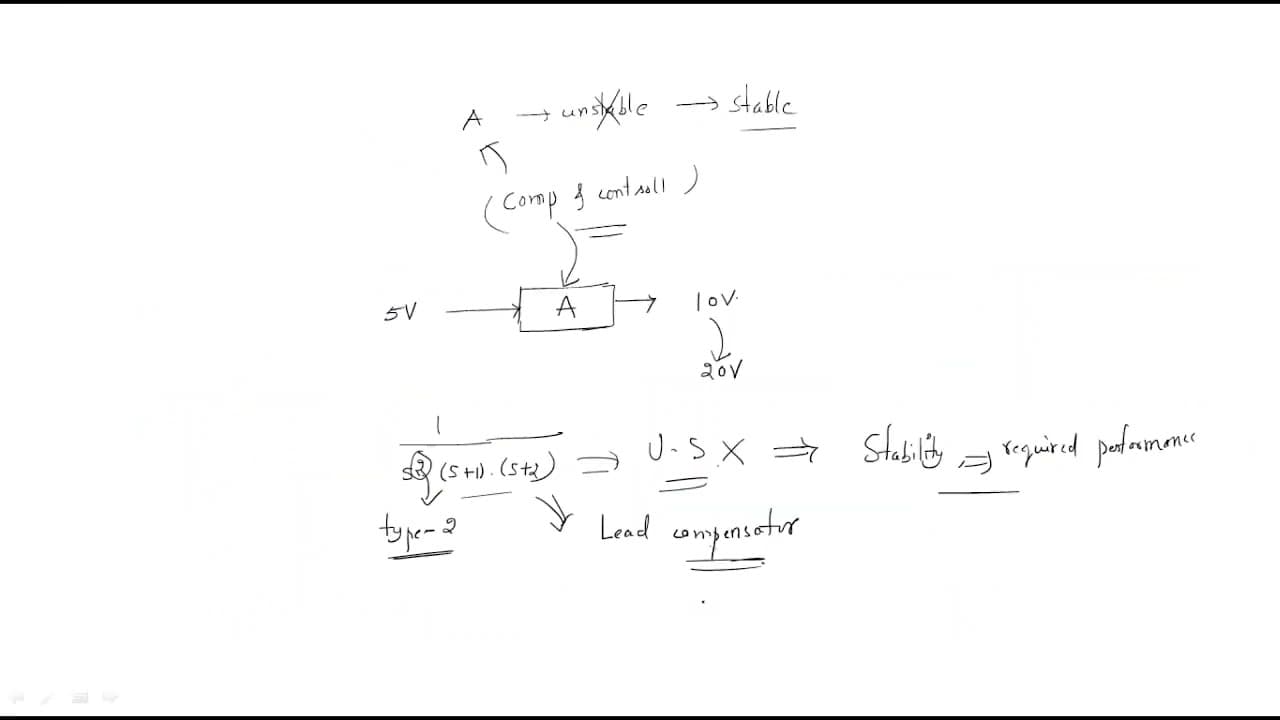 A → unstable → stable
(comp & controll)
5V → A → 10V.
20V
1
s² (s+1).(s+2) ⇒ U.S X ⇒ Stability ⇒ required performance
type-2 Lead compensator